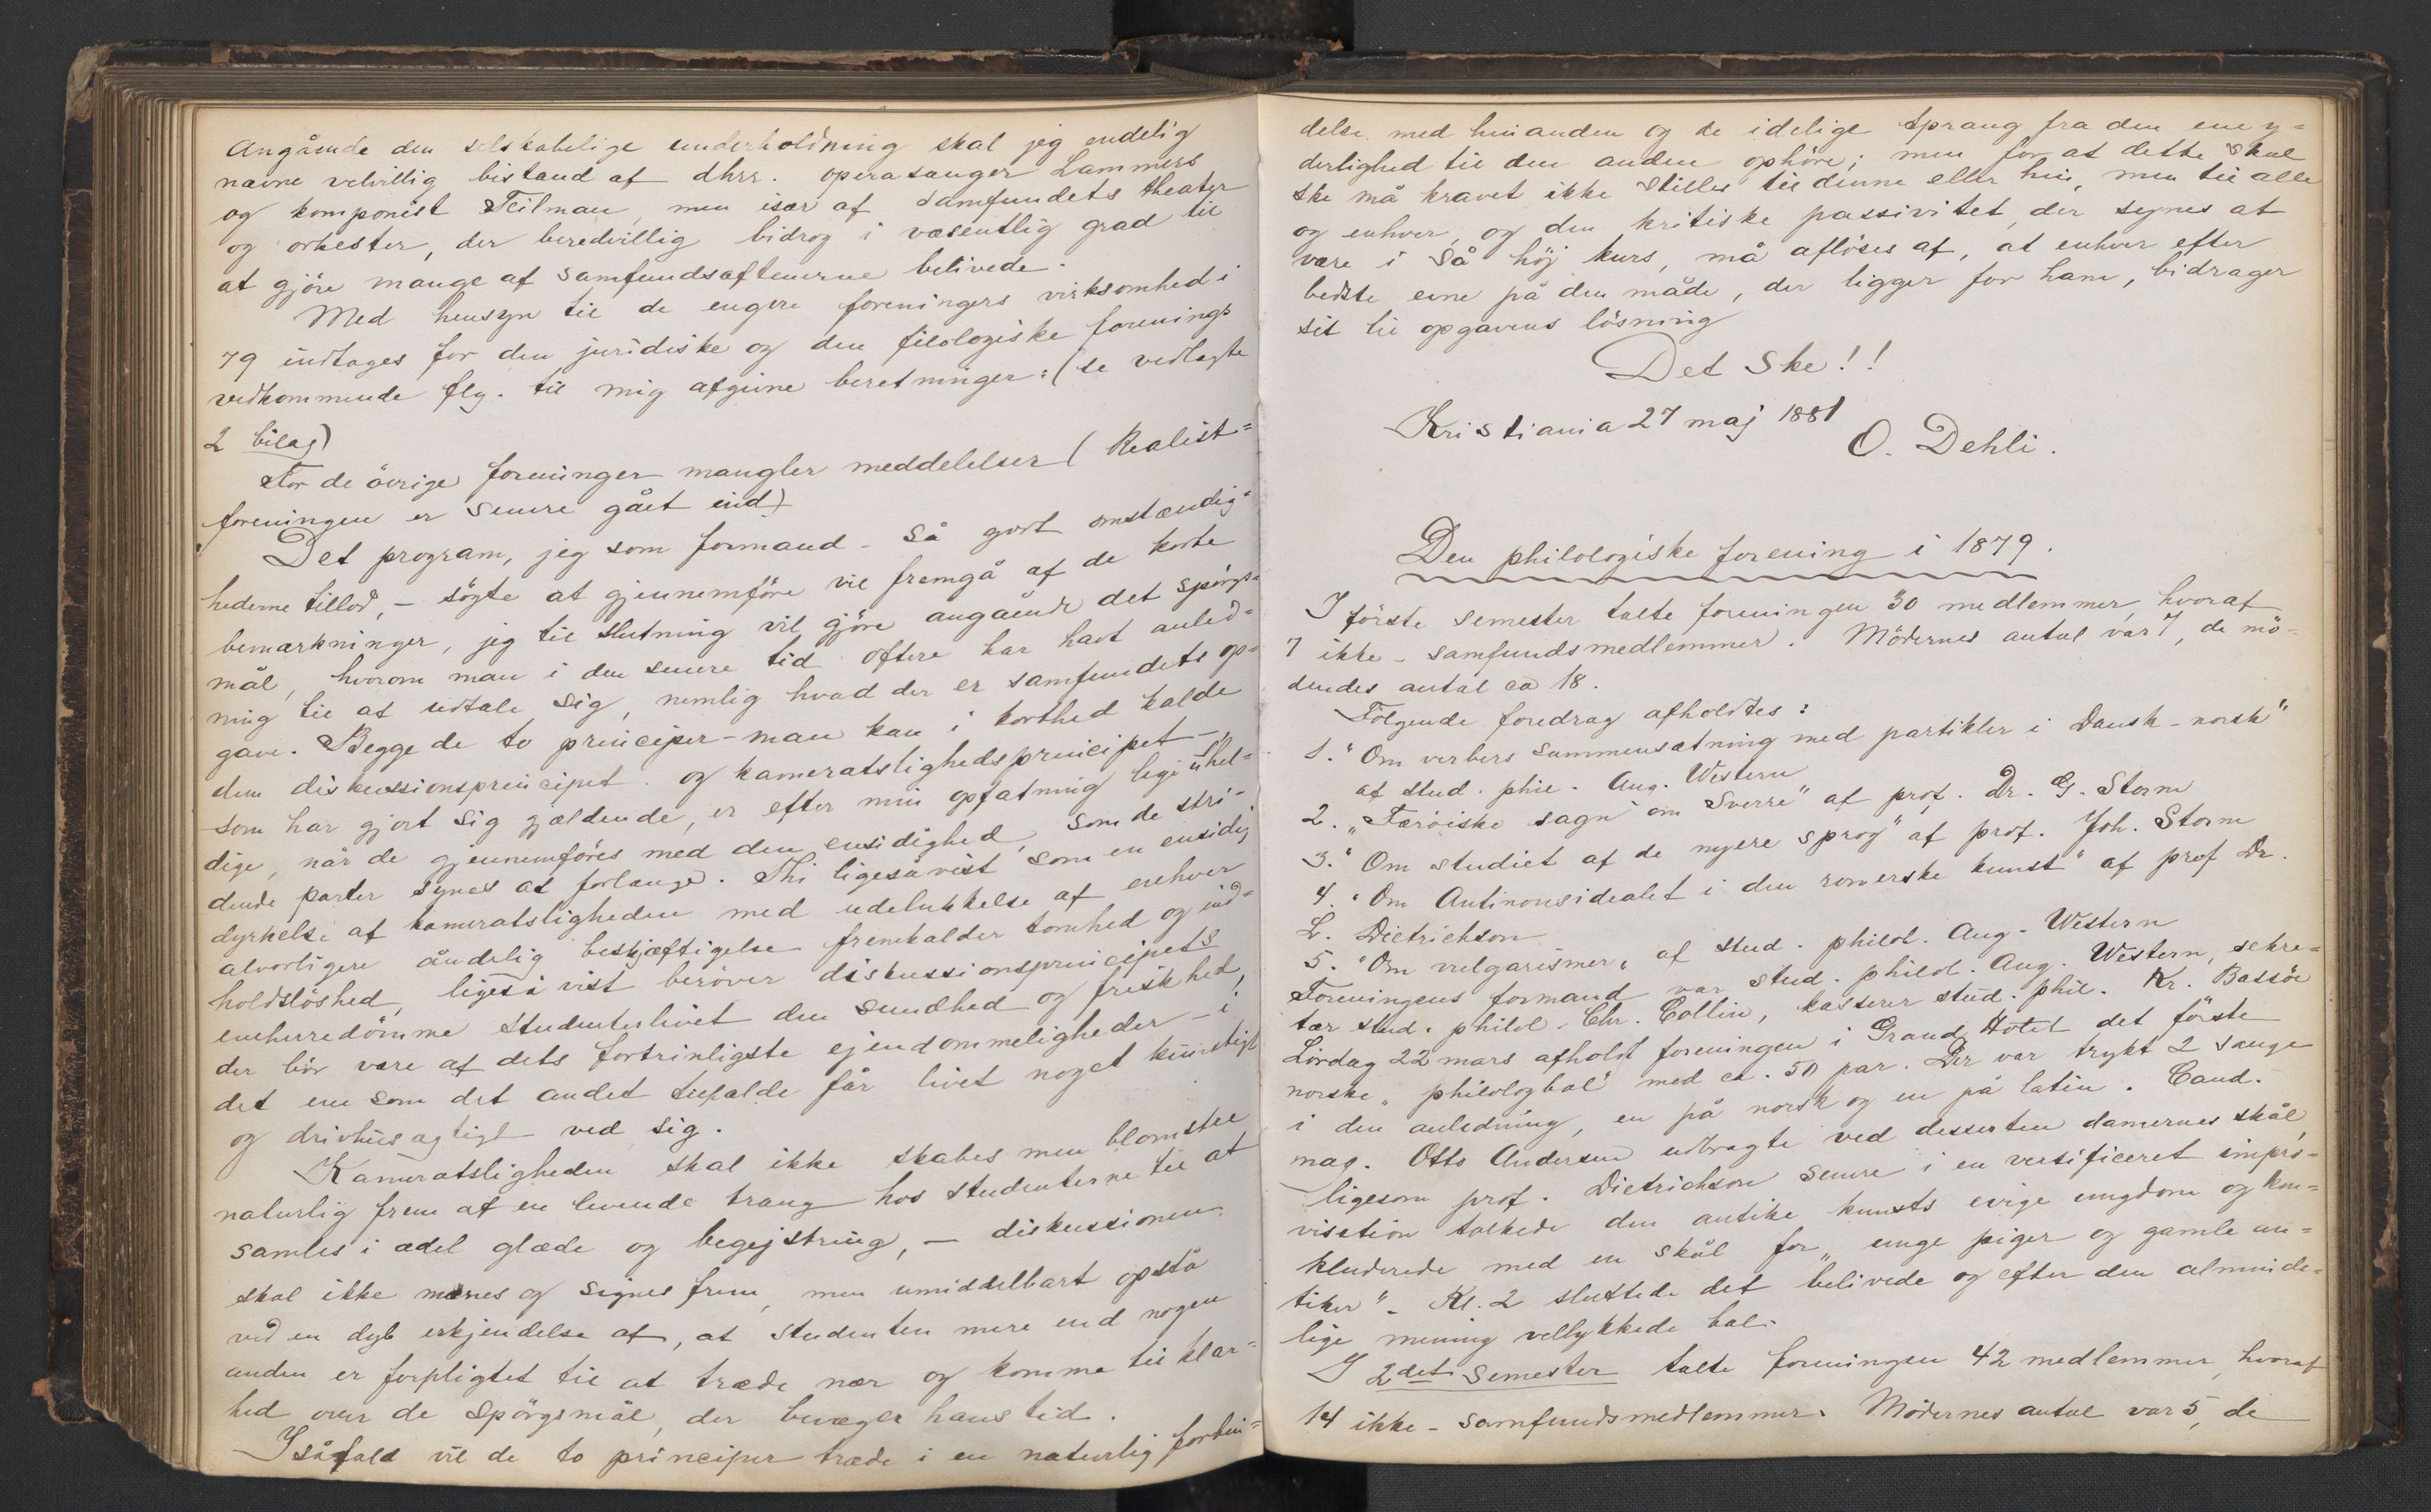 Angående den selskabelige underholdning skal jeg endelig
nævne velvillig bistand af dhrr. operasanger Lammers
og komponist Teilman, men især af samfundets theater
og orkester, der beredvillig bidrog i væsentlig grad til
at gjöre mange af samfundsaftenerne belivede.
Med hensyn til de engere foreningers virksomhed i
79 indtages for den juridiske og den filologiske forenings
vedkommende flg. til mig afgivne beretninger: (se vedlagte
2 bilag)
For de övrige foreninger mangler meddelelser (Realist=
foreningen er senere gået ind)
Det program, jeg som formand - så godt omstændig=
hederne tillod, - sögte at gjennemföre vil fremgå af de korte
bemærkninger, jeg til slutning vil gjöre angående det spörgs=
mål, hvorom man i den senere tid oftere har havt anled=
ning til at udtale sig, nemlig hvad der er samfundets op=
gave. Begge de to principer - man kan i korthed kalde
dem diskussionsprincipet og kameratslighedsprincipet -,
som har gjort sig gjældende, er efter min opfatning lige uhel=
dige, når de gjennemföres med den ensidighed, som de stri=
dende parter synes at forlange. Thi ligesåvist som en ensidig
dyrkelse af kameratsligheden med udelukkelse af enhver
alvorligere åndelig beskjæftigelse fremkalder tomhed og ind=
holdslöshed, ligeså vist beröver diskussionsprincipets
eneherredömme studenterlivet den sundhed og friskhed,
der bör være af dets fortrinligste ejendommeligheder - i
det ene som det andet tilfælde får livet noget kunstigt
og drivhusagtigt ved sig.
Kameratsligheden skal ikke skabes men blomstre
naturlig frem af en levende trang hos studenterne til at
samles i ædel glæde og begejstring, - diskussionen
skal ikke manes og signes frem, men umiddelbart opstå
ved en dyb erkjendelse af, at studenten mere end nogen
anden er forpligtet til at træde nær og komme til klar=
hed over de spörgsmål, der bevæger hans tid.
I såfald vil de to principer træde i en naturlig forbin=
delse med hinanden og de idelige sprang fra den ene y=
derlighed til den anden ophöre; men for at dette skal
ske må kravet ikke stilles til denne eller hin, men til alle
og enhver, og den kritiske passivitet, der synes at
være i så höj kurs, må aflöses af, at enhver efter
bedste evne på den måde, der ligger for ham, bidrager
sit til opgavens lösning
Det ske!!
Kristiania 27 maj 1881
O. Dehli.
Den philologiske forening i 1879.
I förste semester talte foreningen 30 medlemmer, hvoraf
7 ikke-samfundsmedlemmer. Mödernes antal var 7, de mö=
dendes antal ca 18.
Fölgende foredrag afholdtes:
1. "Om verbers sammensætning med partikler i Dansk-norsk"
af stud. phil. Aug. Western
2. "Færöiske sagn om Sverre" af prof. Dr. G. Storm
3. "Om studiet af de nyere sprog" af prof. Joh. Storm
4. "Om Antinousidealet i den romerske kunst" af prof Dr.
L. Dietrichson
5. "Om vulgarismer" af stud. philol. Aug. Western
Foreningens formand var stud. philol. Aug. Western, sekre=
tær stud. philol. Chr. Collin, kasserer stud. phil. Kr. Bassöe
Lördag 22 mars afholdt foreningen i Grand Hotel det förste
norske "philologbal" med ca. 50 par. Der var trykt 2 sange
i den anledning, en på norsk og en på latin. Cand.
mag. Otto Andersen udbragte ved desserten damernes skål
ligesom prof. Dietrichson senere i en versificeret impro=
visation tolkede den antike kunsts evige ungdom og kon=
kluderede med en skål for "unge piger og gamle an=
tiker". Kl. 2 sluttede det belivede og efter den alminde=
lige mening vellykkede bal.
I 2det semester talte foreningen 42 medlemmer, hvoraf
14 ikke-samfundsmedlemmer. Mödernes antal var 5, de